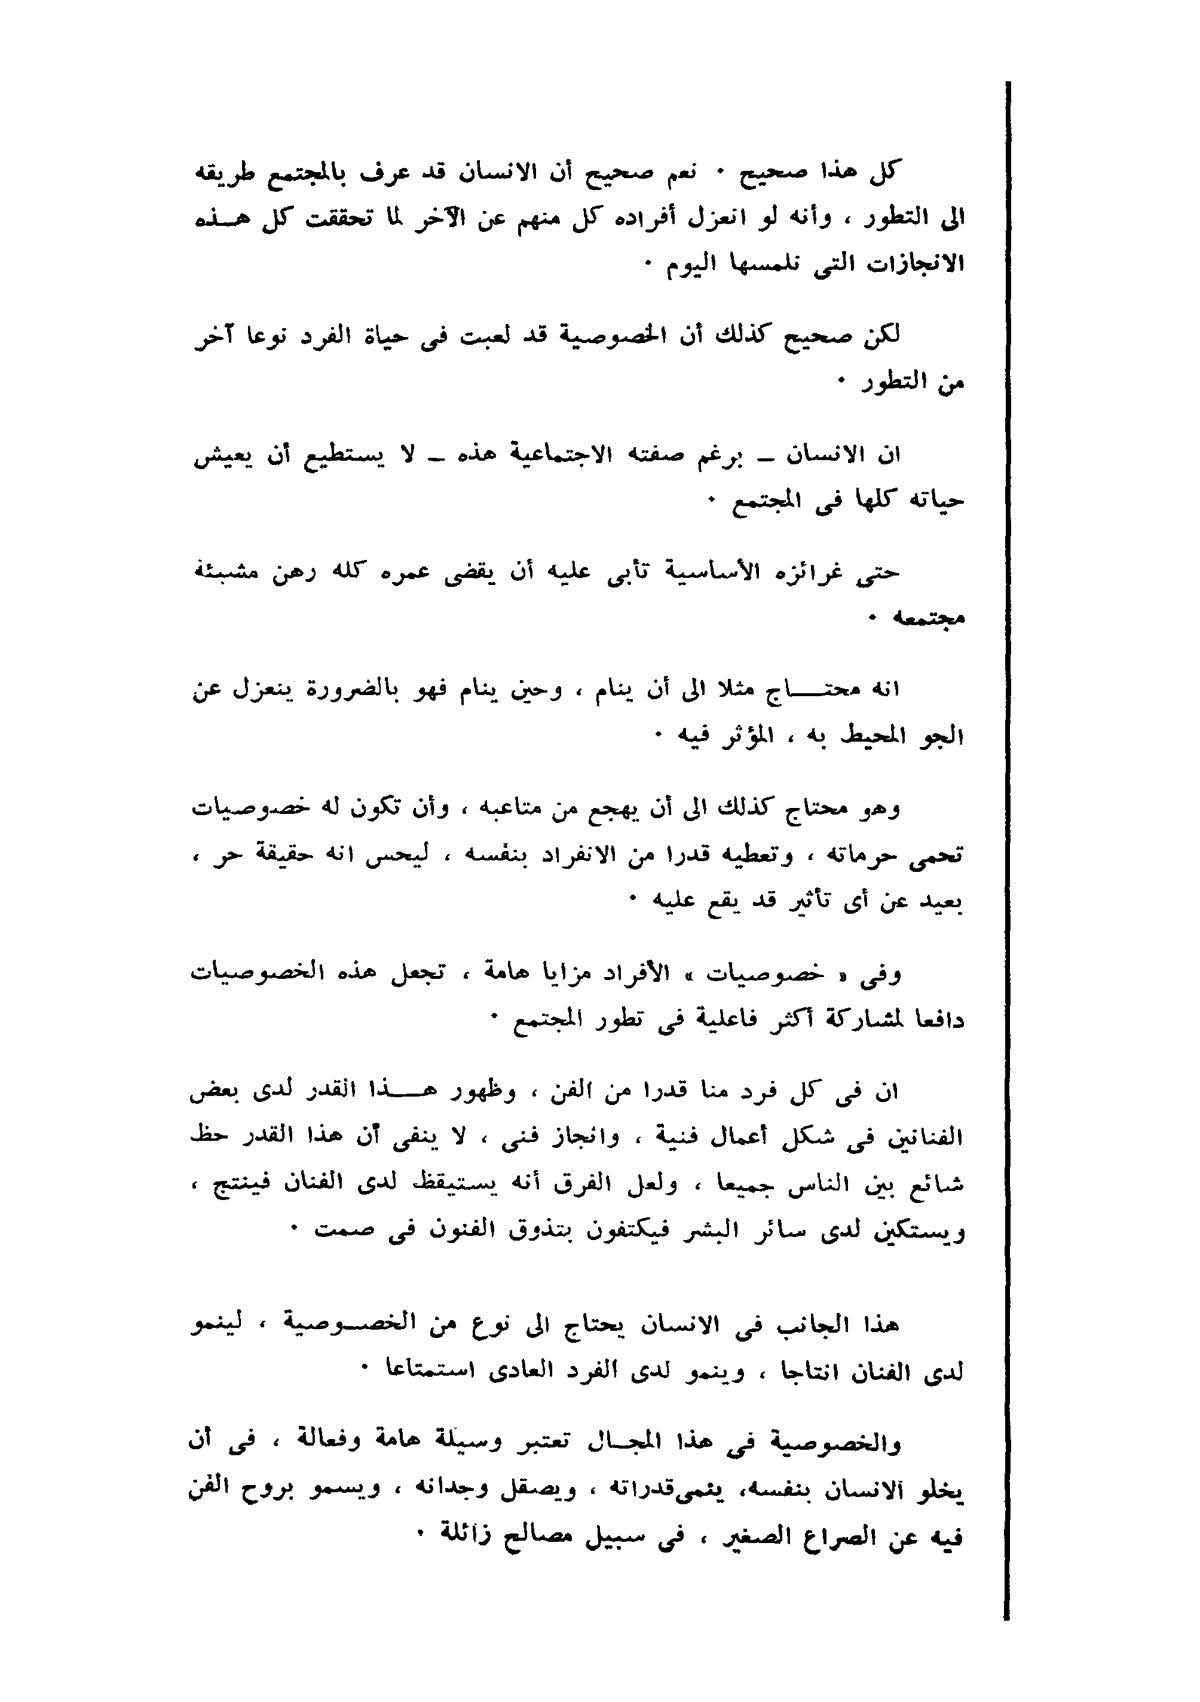 كل هذا صحيح ٠ نعم صحيح أن الانسان قد عرف بالمجتمع طريقه
الى التطور ، وأنه لو انعزل أفراده كل منهم عن الآخر لما تحققت كل هــذه
الانجازات التى نلمسها اليوم ٠
لكن صحيح كذلك أن الخصوصية قد لعبت فى حياة الفرد نوعا آخر
من التطور ٠
ان الانسان ــ برغم صفته الاجتماعية هذه ــ لا يستطيع أن يعيش
حياته كلها فى المجتمع ٠
حتى غرائزه الأساسية تأبى عليه أن يقضى عمره كله رهن مشيئة
مجتمعه ٠
انه محتــــاج مثلا الى أن ينام ، وحين ينام فهو بالضرورة ينعزل عن
الجو المحيط به ، المؤثر فيه ٠
وهو محتاج كذلك الى أن يهجع من متاعبه ، وأن تكون له خصوصيات
تحمى حرماته ، وتعطيه قدرا من الانفراد بنفسه ، ليحس انه حقيقة حر ،
بعيد عن أى تأثير قد يقع عليه ٠
وفى « خصوصيات » الأفراد مزايا هامة ، تجعل هذه الخصوصيات
دافعا لمشاركة أكثر فاعلية فى تطور المجتمع ٠
ان فى كل فرد منا قدرا من الفن ، وظهور هـــذا القدر لدى بعض
الفنانين فى شكل أعمال فنية ، وانجاز فنى ، لا ينفى أن هذا القدر حظ
شائع بين الناس جميعا ، ولعل الفرق أنه يستيقظ لدى الفنان فينتج ،
ويستكين لدى سائر البشر فيكتفون بتذوق الفنون فى صمت ٠
هذا الجانب فى الانسان يحتاج الى نوع من الخصــوصية ، لينمو
لدى الفنان انتاجا ، وينمو لدى الفرد العادى استمتاعا ٠
والخصوصية فى هذا المجــال تعتبر وسيلة هامة وفعالة ، فى أن
يخلو الانسان بنفسه، ينمى قدراته ، ويصقل وجدانه ، ويسمو بروح الفن
فيه عن الصراع الصغير ، فى سبيل مصالح زائلة ٠